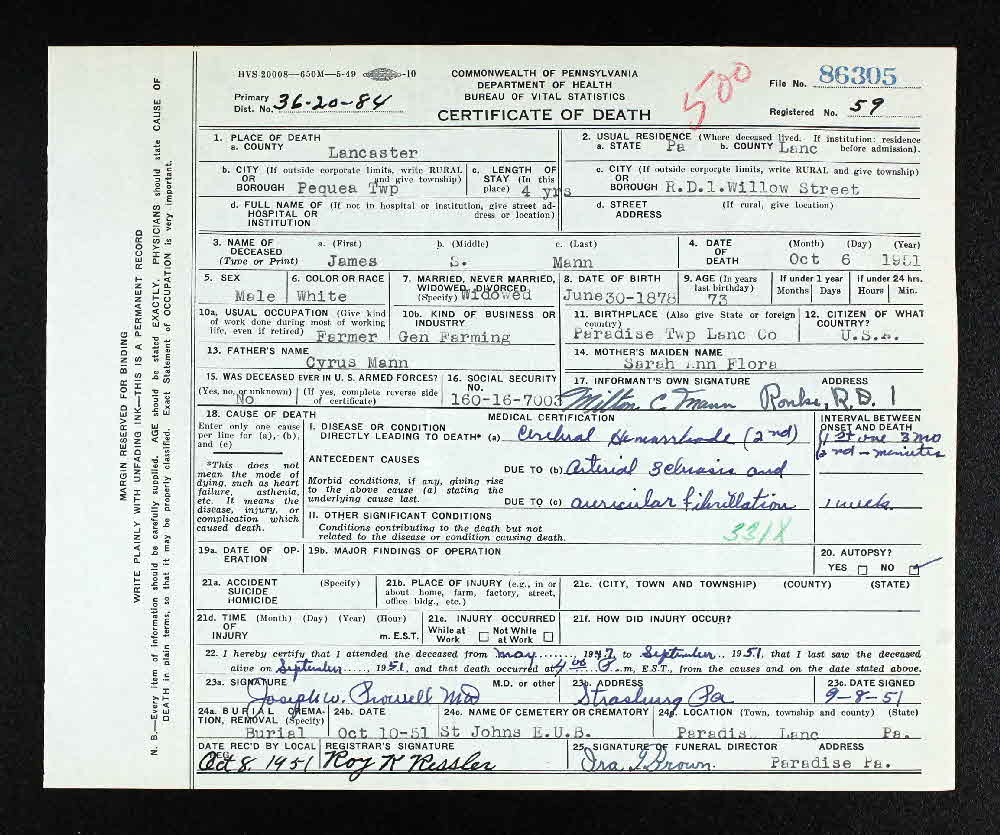 HVS-20008—650M—5-49 -10
COMMONWEALTH OF PENNSYLVANIA
DEPARTMENT OF HEALTH
BUREAU OF VITAL STATISTICS
CERTIFICATE OF DEATH
500
File No. 86305
Primary Dist. No. 36-20-84
Registered No. 59
1. PLACE OF DEATH
a. COUNTY Lancaster
2. USUAL RESIDENCE (Where deceased lived. If institution: residence before admission).
a. STATE Pa b. COUNTY Lanc
b. CITY (If outside corporate limits, write RURAL and give township) OR BOROUGH Pequea Twp
c. LENGTH OF STAY (In this place) 4 yrs
c. CITY (If outside corporate limits, write RURAL and give township) OR BOROUGH R.D.1.Willow Street
d. FULL NAME OF HOSPITAL OR INSTITUTION (If not in hospital or institution, give street address or location)
d. STREET ADDRESS (If rural, give location)
3. NAME OF DECEASED (Type or Print)
a. (First) James
b. (Middle) S.
c. (Last) Mann
4. DATE OF DEATH (Month) (Day) (Year)
Oct 6 1951
5. SEX Male
6. COLOR OR RACE White
7. MARRIED, NEVER MARRIED, WIDOWED, DIVORCED (Specify) Widowed
8. DATE OF BIRTH June 30-1878
9. AGE (In years last birthday) 73
If under 1 year Months Days
If under 24 hrs. Hours Min.
10a. USUAL OCCUPATION (Give kind of work done during most of working life, even if retired) Farmer
10b. KIND OF BUSINESS OR INDUSTRY Gen Farming
11. BIRTHPLACE (Also give State or foreign country) Paradise Twp Lanc Co
12. CITIZEN OF WHAT COUNTRY? U.S.A.
13. FATHER'S NAME Cyrus Mann
14. MOTHER'S MAIDEN NAME Sarah Ann Flora
15. WAS DECEASED EVER IN U. S. ARMED FORCES?
(Yes, no, or unknown) No (If yes, complete reverse side of certificate)
16. SOCIAL SECURITY NO. 160-16-7003
17. INFORMANT'S OWN SIGNATURE ADDRESS
Milton C. Mann Ronks, R.D. 1
18. CAUSE OF DEATH
Enter only one cause per line for (a), (b), and (c)
*This does not mean the mode of dying, such as heart failure, asthenia, etc. It means the disease, injury, or complication which caused death.
MEDICAL CERTIFICATION
INTERVAL BETWEEN ONSET AND DEATH
I. DISEASE OR CONDITION DIRECTLY LEADING TO DEATH* (a) Cerebral Hemorrhage (2nd)
1st one 3 mo
2nd - minutes
ANTECEDENT CAUSES
Morbid conditions, if any, giving rise to the above cause (a) stating the underlying cause last.
DUE TO (b) Arterial Sclerosis and
DUE TO (c) auricular fibrillation 1 week
II. OTHER SIGNIFICANT CONDITIONS
Conditions contributing to the death but not related to the disease or condition causing death.
331X
19a. DATE OF OPERATION
19b. MAJOR FINDINGS OF OPERATION
20. AUTOPSY?
YES NO
21a. ACCIDENT SUICIDE HOMICIDE (Specify)
21b. PLACE OF INJURY (e.g., in or about home, farm, factory, street, office bldg., etc.)
21c. (CITY, TOWN AND TOWNSHIP) (COUNTY) (STATE)
21d. TIME OF INJURY (Month) (Day) (Year) (Hour) m. E.S.T.
21e. INJURY OCCURRED
While at Work Not While at Work
21f. HOW DID INJURY OCCUR?
22. I hereby certify that I attended the deceased from May, 1947, to September, 1951, that I last saw the deceased
alive on September, 1951, and that death occurred at 4:00 P.m, E.S.T., from the causes and on the date stated above.
23a. SIGNATURE M.D. or other
Joseph W. Prowell MD
23b. ADDRESS Strasburg Pa
23c. DATE SIGNED 9-8-51
24a. BURIAL, CREMATION, REMOVAL (Specify) Burial
24b. DATE Oct 10-51
24c. NAME OF CEMETERY OR CREMATORY St Johns E.U.B.
24d. LOCATION (Town, township and county) (State)
Paradis Lanc Pa.
DATE REC'D BY LOCAL REG. Oct 8. 1951
REGISTRAR'S SIGNATURE Roy K Kessler
25. SIGNATURE OF FUNERAL DIRECTOR ADDRESS
Ira J. Brown. Paradise Pa.
MARGIN RESERVED FOR BINDING
WRITE PLAINLY WITH UNFADING INK—THIS IS A PERMANENT RECORD
N. B.—Every item of information should be carefully supplied. AGE should be stated EXACTLY. PHYSICIANS should state CAUSE OF
DEATH in plain terms, so that it may be properly classified. Exact Statement of OCCUPATION is very important.